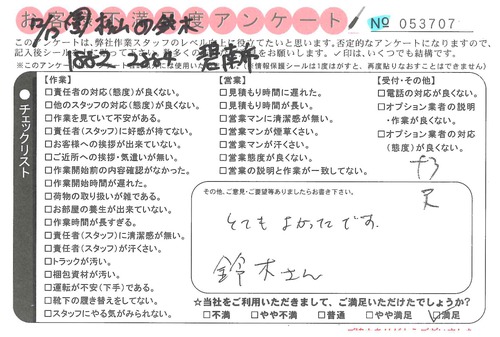 お客様満足度アンケート
№ 053707
このアンケートは、弊社作業スタッフのレベル向上に役立てたいと思います。否定的なアンケートになりますので、
チェックリスト
【作業】
□責任者の対応(態度)が良くない。
□他のスタッフの対応(態度)が良くない。
□作業を見ていて不安がある。
□責任者(スタッフ)に好感が持てない。
□お客様への挨拶が出来ていない。
□ご近所への挨拶・気遣いが無い。
□作業開始前の内容確認がなかった。
□作業開始時間が遅れた。
□荷物の取り扱いが雑である。
□お部屋の養生が出来ていない。
□作業時間が長すぎる。
□責任者(スタッフ)に清潔感が無い。
□責任者(スタッフ)が汗くさい。
□トラックが汚い。
□梱包資材が汚い。
□運転が不安(下手)である。
□靴下の履き替えをしてない。
□スタッフにやる気がみられない。
【営業】
□見積もり時間に遅れた。
□見積もり時間が長い。
□営業マンに清潔感が無い。
□営業マンが煙草くさい。
□営業マンが汗くさい。
□営業態度が良くない。
□営業の説明と作業が一致してない。
【受付・その他】
□電話の対応が良くない。
□オプション業者の説明
・作業が良くない。
□オプション業者の対応
(態度)が良くない。
その他、ご意見・ご要望等ありましたらお書き下さい。
とてもよかったです。
鈴木さん
☆当社をご利用いただきまして、ご満足いただけたでしょうか?
□不満 □やや不満 □普通 □やや満足 ☑満足